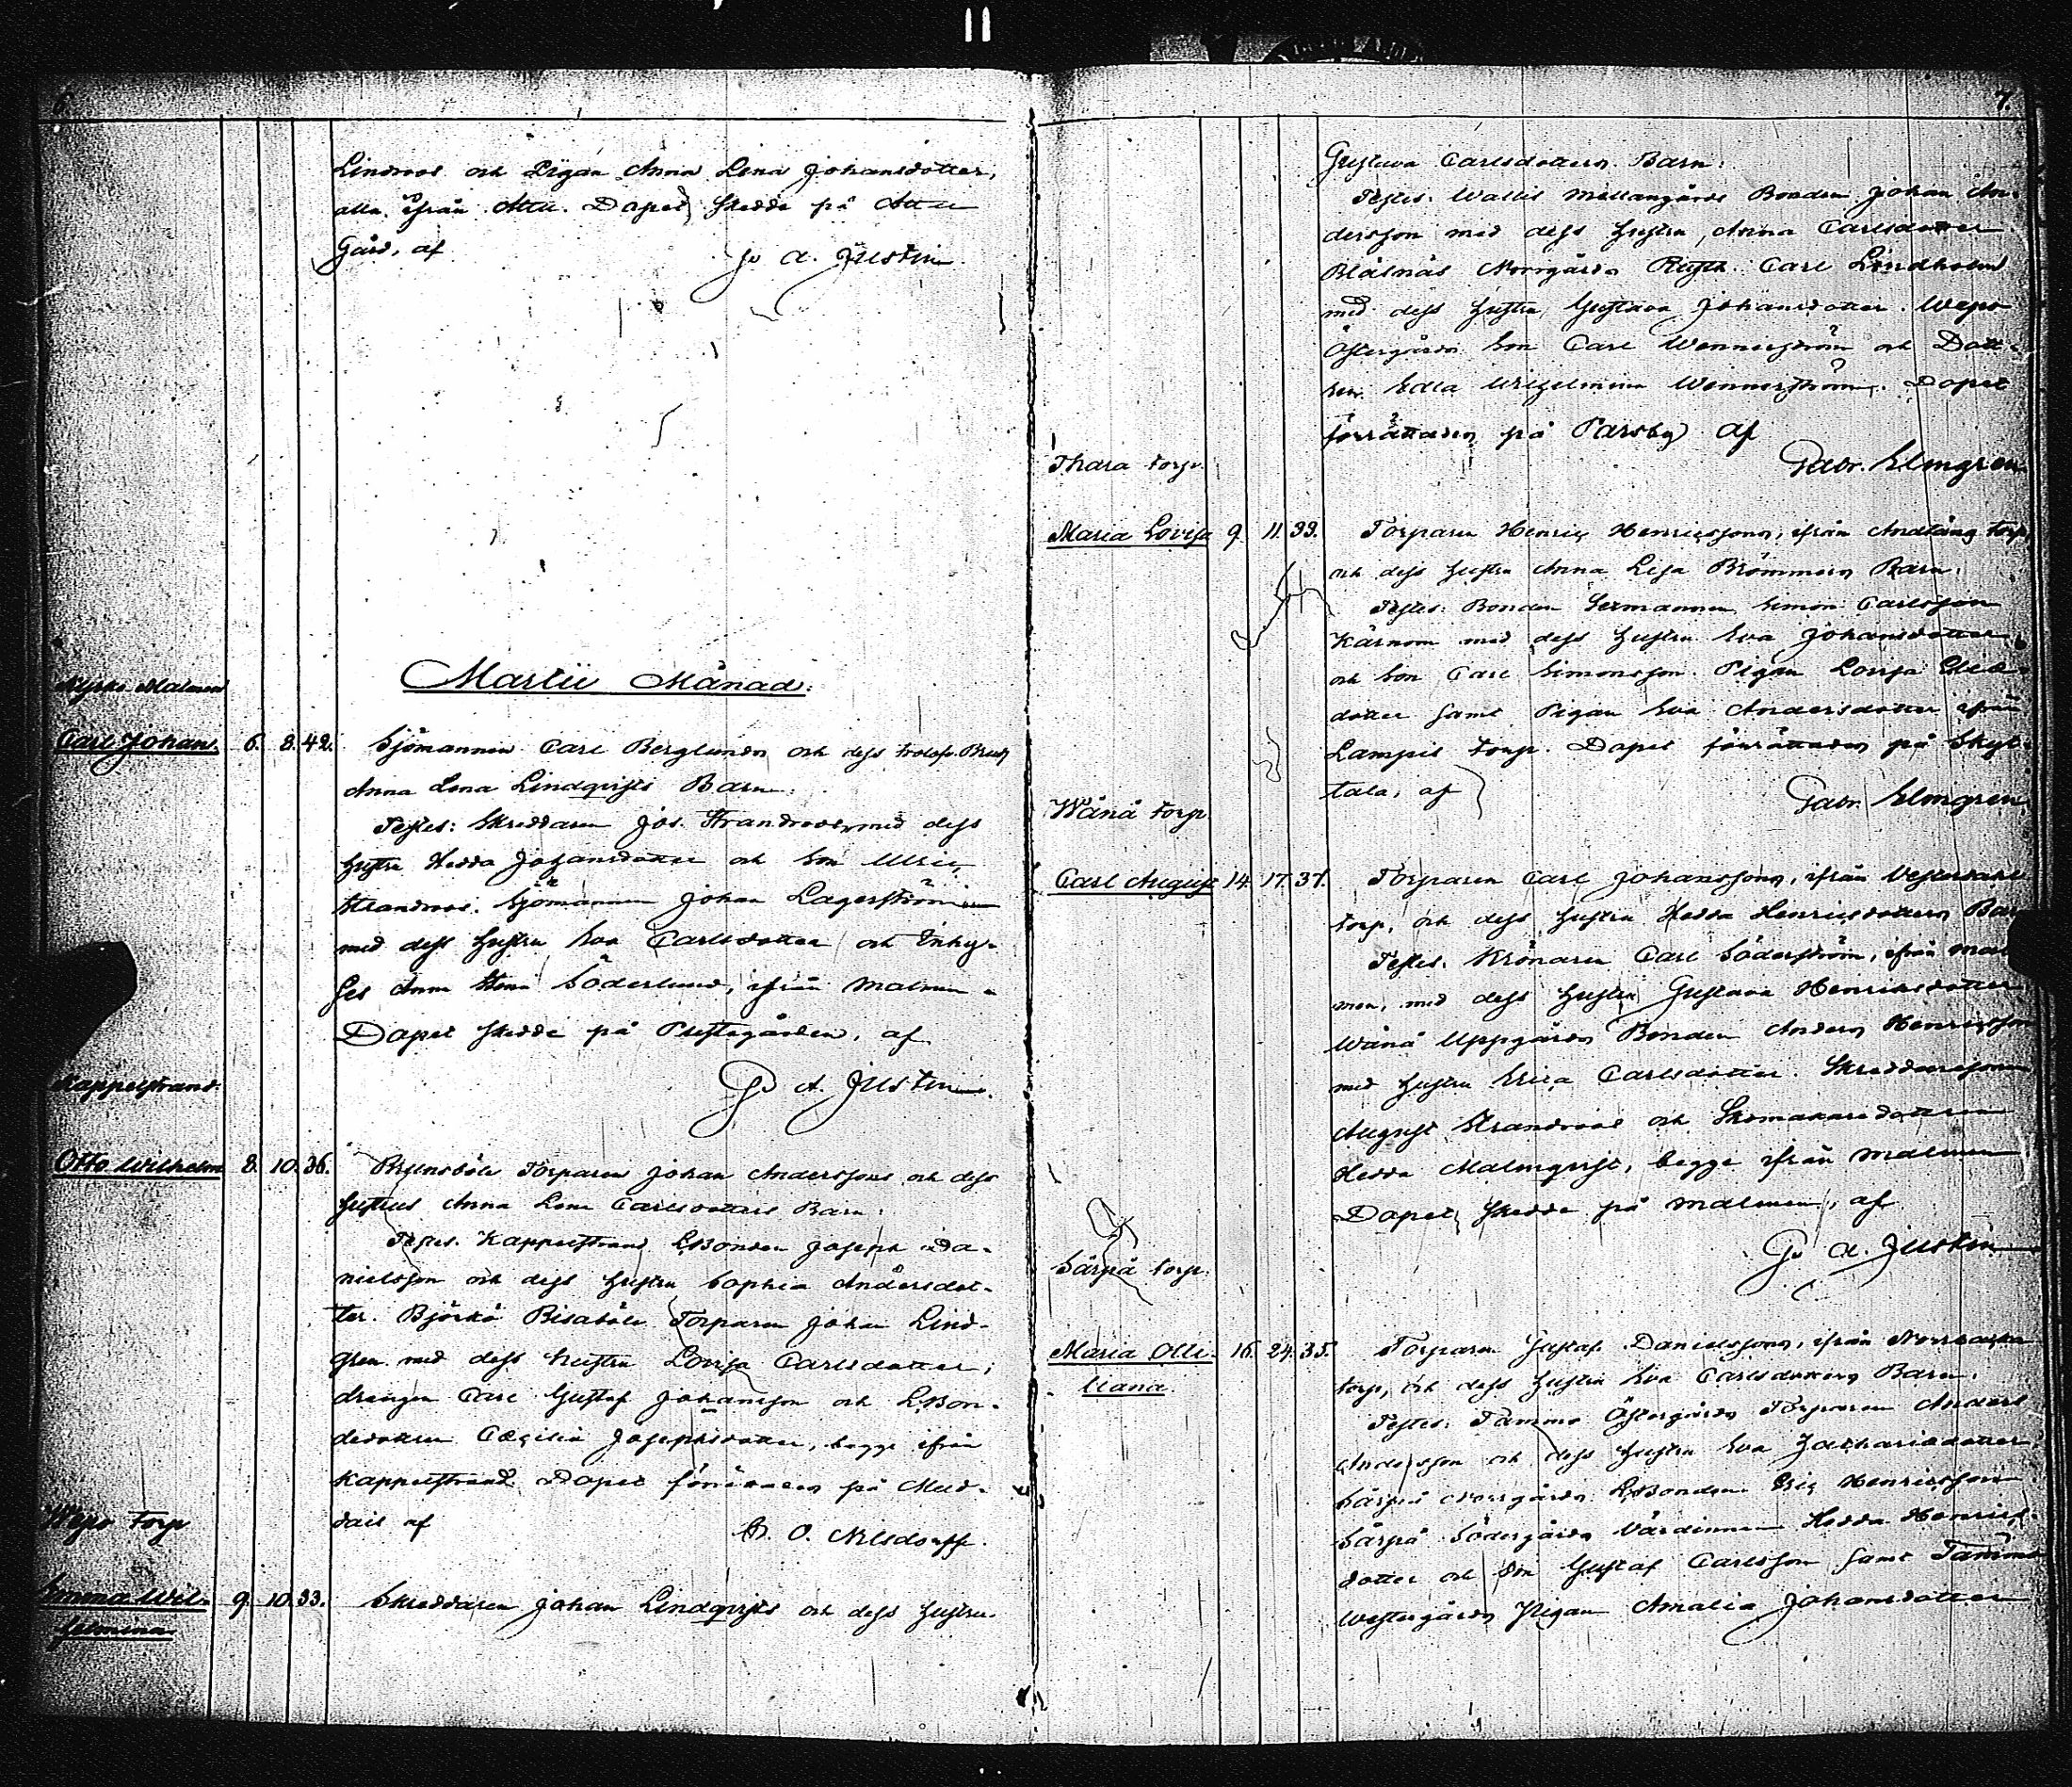 6.
Lindroos och Pigan Anna Lena Johansdotter,
alla ifrån Attu. Dopet skedde på Attu
Gård, af
G. A. Justin.
Martii Månad.
Kyrko Malmen
Carl Johan. 6. 8. 42. Sjömannen Carl Berglunds och dess trolofv. Brud
Anna Lena Lindqvists Barn.
Testes: Skreddaren Jos. Strandroos, med dess
hustru Hedda Johansdotter och Son Ulric
Strandroos. Sjömannen Johan Lagerström
med dess hustru Eva Carlsdotter och Inhy-
ses Anna Stina Söderlund, ifrån Malmen.
Dopet skedde på Prestegården, af
G. A. Justin.
Kappelstrand.
Otto Wilhelm 8. 10. 36. Brunsböle Torparen Johan Anderssons och dess
hustrus Anna Lena Carlsdotters Barn.
Testes. Kappelstrand LBonden Joseph Da-
nielsson och dess hustru Sophia Andersdot-
ter. Björkö Bisaböle Torparen Johan Lind-
gren med dess hustru Lovisa Carlsdotter,
drengen Carl Gustaf Johansson och LBon-
dedottren Cæcilia Josephsdotter, begge ifrån
Kappelstrand. Dopet förrättades på Mud-
dais af
Wepo torp
Emma Wil- 9. 10. 33. Skreddaren Johan Lindqvists och dess hustru
helmina.
7.
Gustava Carlsdotters Barn.
Testes: Wallis Mellangårds Bonden Johan An-
dersson med dess hustru, Anna Carlsdotter
Bläsnäs Norrgårds Rusth. Carl Lindholm
med dess hustru Gustava Johansdotter. Wepo
Östergårds Son Carl Wennerström och Dott-
ren Edla Wilhelmina Wennerström. Dopet
förrättades på Parsby af
Gabr. Elmgren.
Thara torp.
Maria Lovisa 9. 11. 33. Torparen Henric Henricssons, ifrån Andlång torp,
och dess hustru Anna Lisa Brömmers Barn.
Testes: Bonden Sexmannen Simon Carlsson
Kärnom med dess hustru Eva Johansdotter,
och Son Carl Simonsson. Pigan Lovisa
dotter samt Pigan Eva Andersdotter ifrån
Lampis torp. Dopet förrättades på Skyt-
tala, af
Gabr. Elmgren
Wånå torp
Carl August 14. 17. 37. Torparen Carl Johanssons, ifrån
torp, och dess hustru Hedda Henricsdotters Barn
Testes. Krönaren Carl Söderström, ifrån Mal
men, med dess hustru Gustava Henricsdotter
Wånå Uppgårds Bonden Anders Henricsson
med hustru Erica Carlsdotter. Skreddaresonen
August Strandroos och Skomakaredottren
Hedda Malmqvist, begge ifrån Malmen
Dopet skedde på Malmen, af
G. A. Justin
Särpå torp.
Maria Olli- 16. 24. 35. Torparen Gustaf Danielssons, ifrån
liana. torp, och dess hustru Eva Carlsdotters Barn.
Testes: Tammo Östergårds Torparen Anders
Andersson och dess hustru Eva Zachariædotter,
Särpå Norrgårds LBonden Eric Henricsson
Särpå Södergårds Värdinnan Hedda Henrics-
dotter och Son Gustaf Carlsson samt Tammo
Westergårds Pigan Amalia Johansdotter